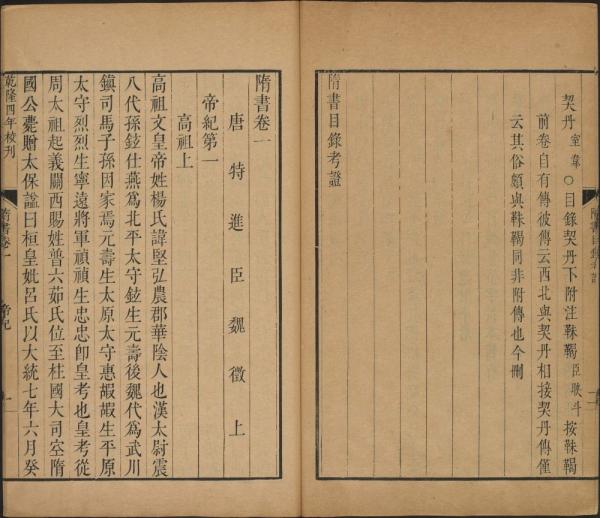 契丹室韋○目錄契丹下附注靺鞨臣映斗按靺鞨
前卷自有傳彼傳云西北與契丹相接契丹傳僅
云其俗頗與靺鞨同非附傳也今刪
隋書目錄考證
隋書卷一
唐特進臣魏徵上
帝紀第一
高祖上
高祖文皇帝姓楊氏諱堅弘農郡華陰人也漢太尉震
八代孫鉉仕燕爲北平太守鉉生元壽後魏代爲武川
鎮司馬子孫因家焉元壽生太原太守惠嘏嘏生平原
太守烈烈生寧遠將軍禎禎生忠忠卽皇考也皇考從
周太祖起義關西賜姓普六茹氏位至柱國大司空隋
國公薨贈太保諡曰桓皇妣呂氏以大統七年六月癸
乾隆四年校刊
隋書卷一
帝紀
一